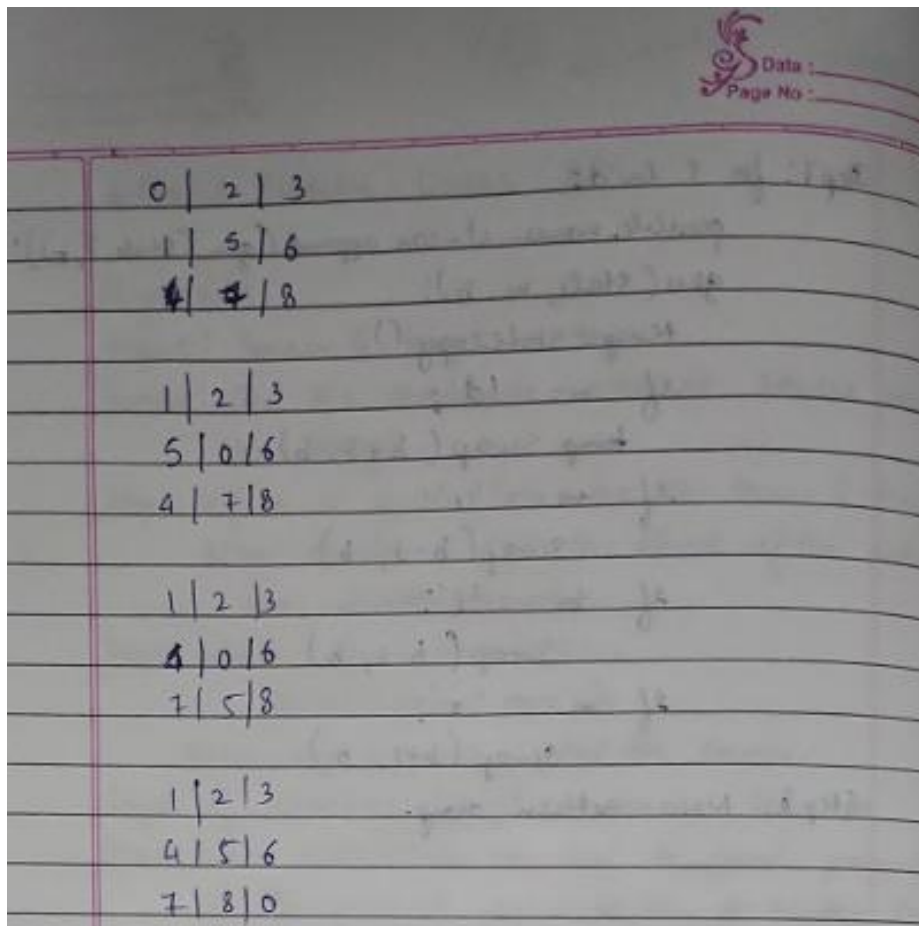 Data :
Page No :
0 | 2 | 3
1 | 5 | 6
4 | 7 | 8
1 | 2 | 3
5 | 0 | 6
4 | 7 | 8
1 | 2 | 3
4 | 0 | 6
7 | 5 | 8
1 | 2 | 3
4 | 5 | 6
7 | 8 | 0